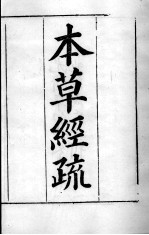 本草經疏